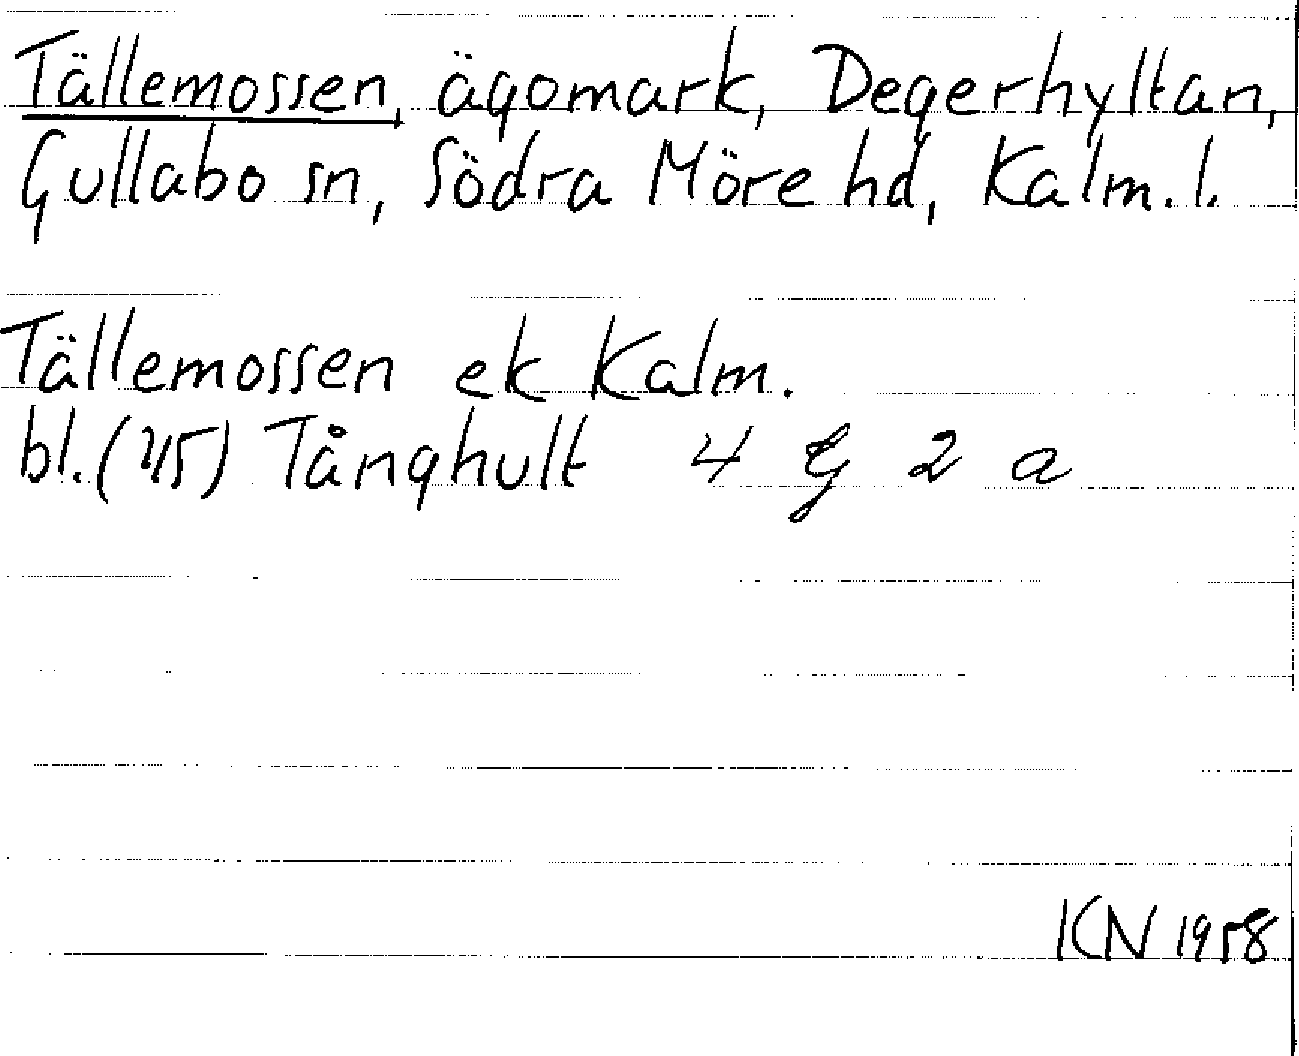 Tällemossen, ägomark, Degerhyltan,
Gullabo sn, Södra Möre hd, Kalm. l.
Tällemossen ek Kalm.
bl. (45) Tånghult 4 G 2 a
KN 1958